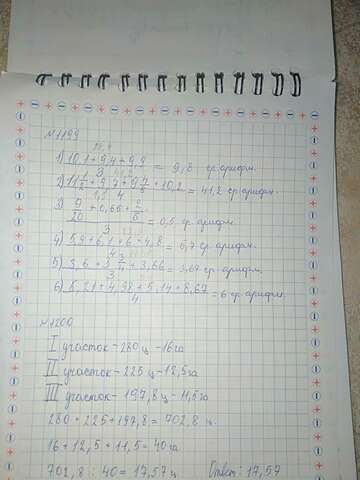 №1199
29,4
1) 10,1 + 9,4 + 9,9 / 3 = 9,8 ср. арифм.
+ 9,7 + + 10,2 / 4 = 41,2 ср. арифм.
3) 9/20 + 0,60 + / 3 = 0,5 ср. арифм.
4) 5,9 + 6,1 + 6 + 4,8 / 4 = 5,7 ср. арифм.
5) 3,6 + 3 3/4 + 3,66 / 3 = 3,67 ср. арифм.
6) 5,21 + 4,98 + 5,14 + 8,67 / 4 = 6 ср. арифм.
№1200
I участок – 280 ц – 16 га
II участок – 225 ц – 12,5 га
III участок – 197,8 ц – 11,5 га
280 + 225 + 197,8 = 702,8 ц.
16 + 12,5 + 11,5 = 40 га
702,8 : 40 = 17,57 ц Ответ: 17,57